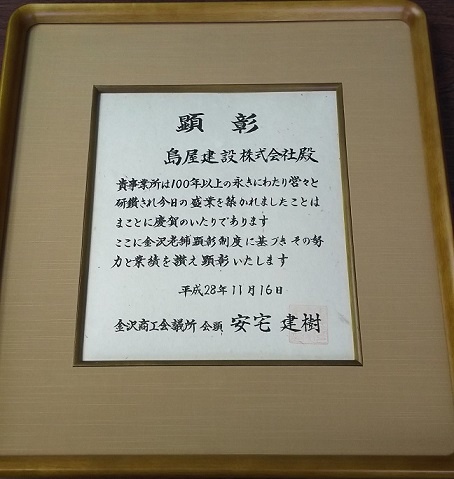 顕彰
鳥屋建設株式会社殿
貴事業所は100年以上の永きにわたり営々と
研鑽され今日の盛業を築かれましたことは
まことに慶賀のいたりであります
ここに金沢老舗顕彰制度に基づき その努
力と業績を讃え 顕彰いたします
平成28年11月16日
金沢商工会議所 会頭 安宅 建樹